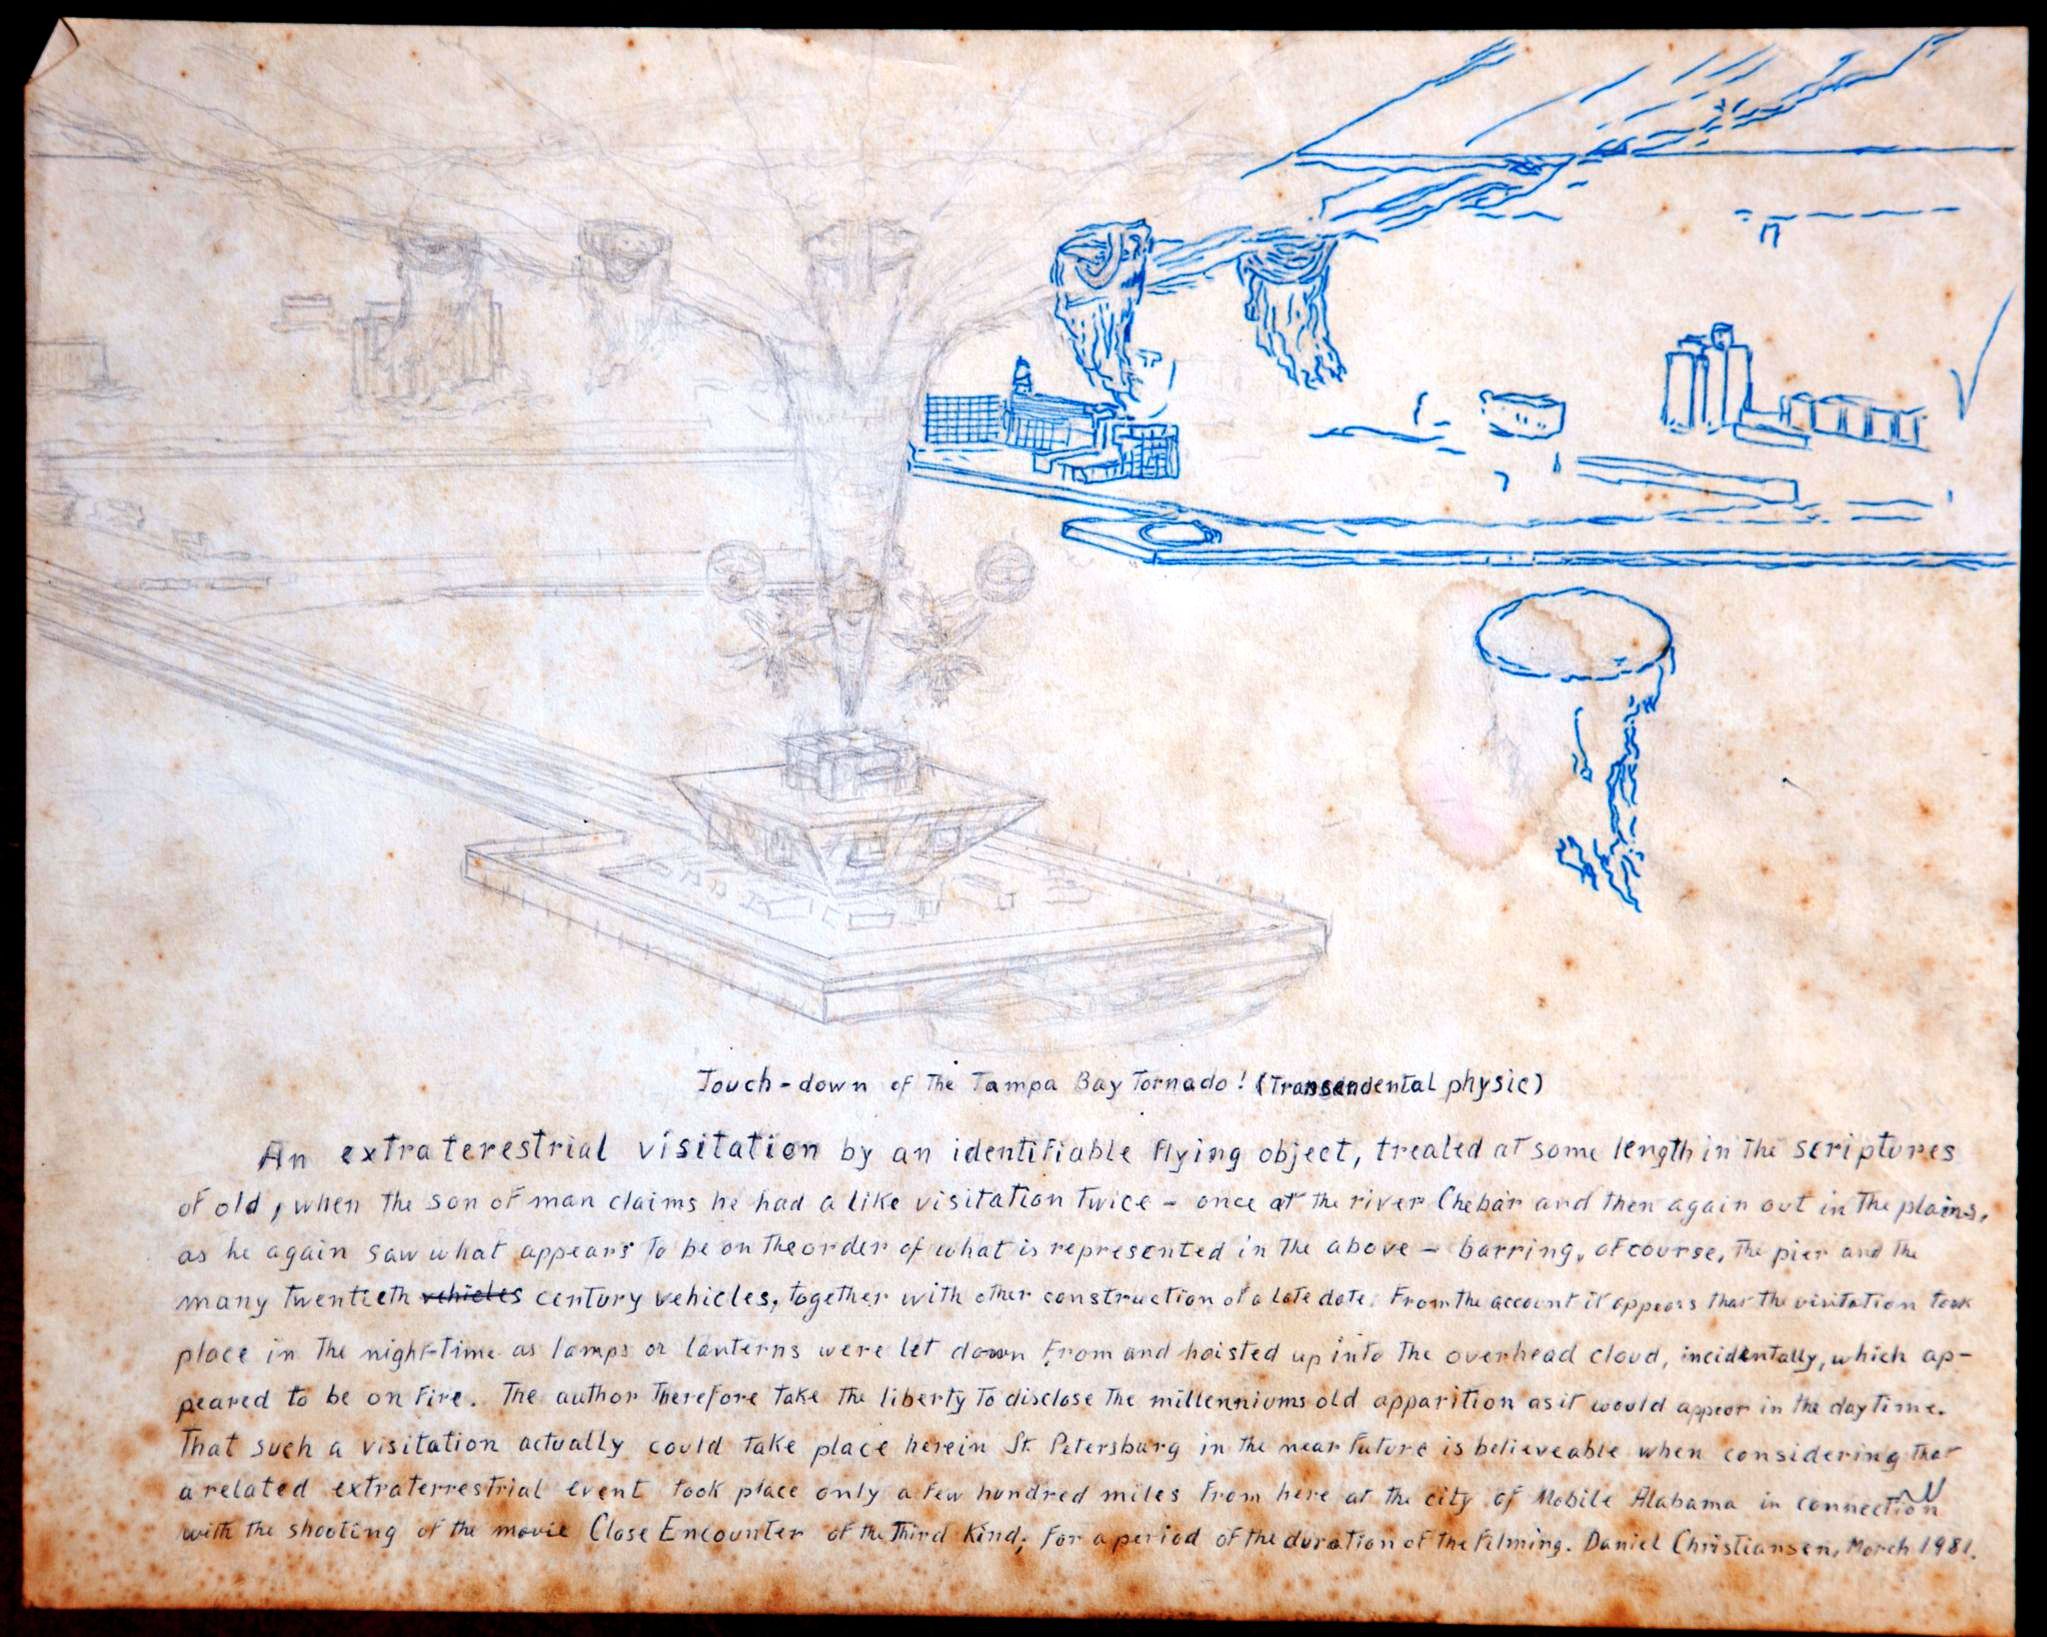 Touch-down of the Tampa Bay Tornado! (Transendental physic)
An extraterestrial visitation by an identifiable flying object, treated at some length in the scriptures
of old, when the son of man claims he had a like visitation twice - once at the river Chebar and then again out in the plains,
as he again saw what appears to be on the order of what is represented in the above - barring, of course, the pier and the
many twentieth vehicles century vehicles, together with other construction of a late date. From the account it appears that the visitation took
place in the night-time as lamps or lanterns were let down from and hoisted up into the overhead cloud, incidentally, which ap-
peared to be on fire. The author therefore take the liberty to disclose the millenniums old apparition as it would appear in the daytime.
That such a visitation actually could take place herein St. Petersburg in the near future is believeable when considering that
a related extraterrestrial event took place only a few hundred miles from here at the city of Mobile Alabama in connection
with the shooting of the movie Close Encounter of the Third Kind; for a period of the duration of the filming. Daniel Christiansen, March 1981.